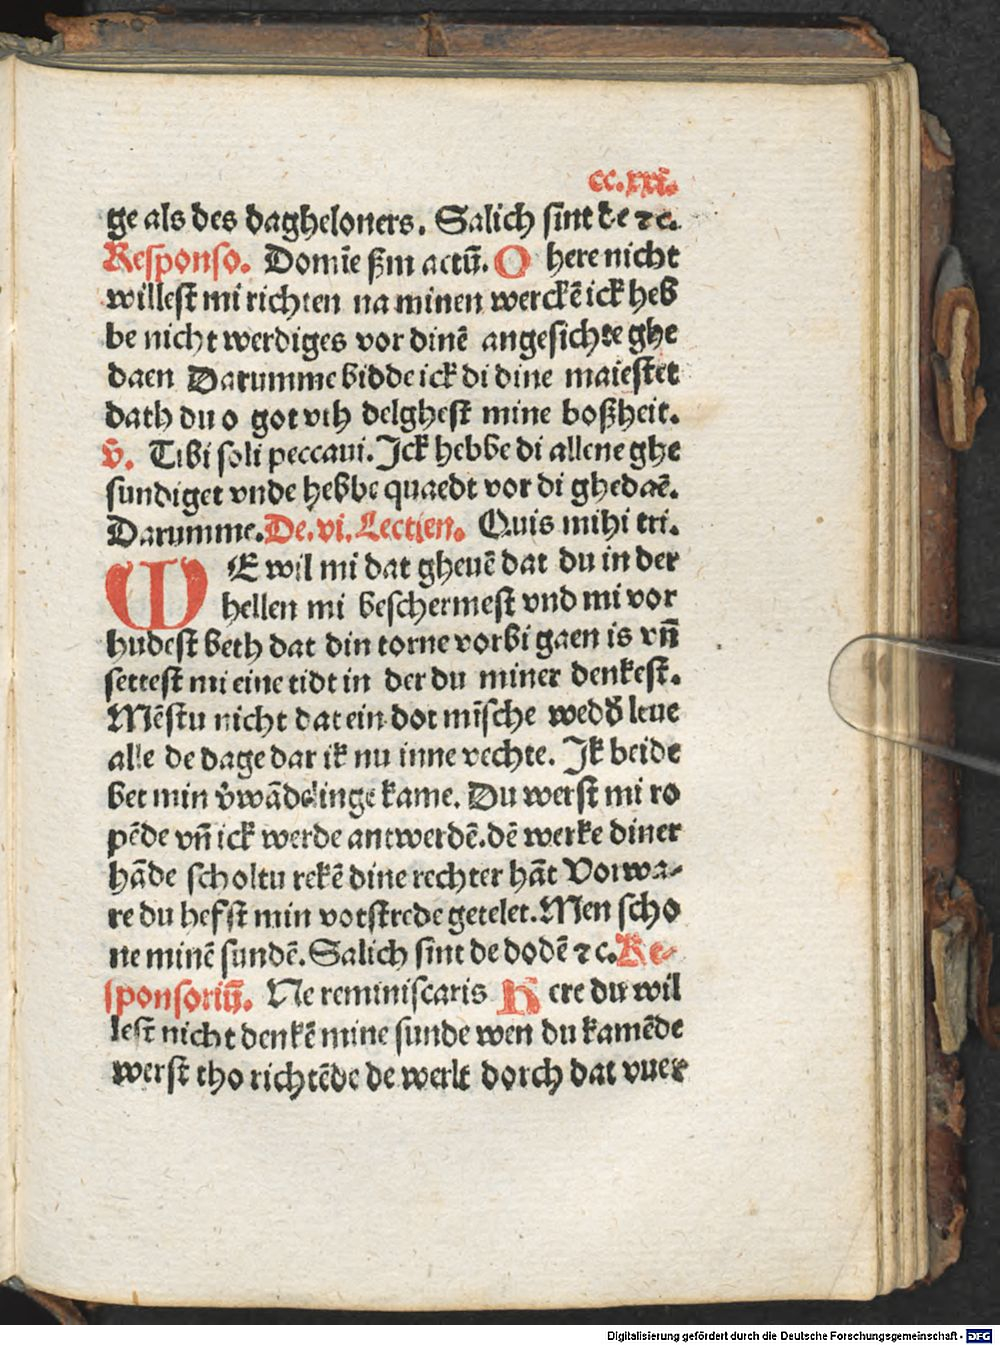 cc.xxi.
ge als des dagheloners. Salich sint de ⁊ c.
Responso. Domīe ẞm actū. O here nicht
willest mi richten na minen werckē ick heb
be nicht werdiges vor dinē angesichte ghe
daen Darumme bidde ick di dine maiestet
dath du o got vth delghest mine boßheit.
v̄. Tibi soli peccaui. Ick hebbe di allene ghe
sundiget vnde hebbe quaedt vor di ghedaē.
Darumme. De. vi. Lectien. Quis mihi tri.
WE wil mi dat gheuē dat du in der
hellen mi beschermest vnd mi vor
hudest beth dat din torne vorbi gaen is vn̄
settest mi eine tidt in der du miner denkest.
Mēstu nicht dat ein dot mīsche wedd̄ leue
alle de dage dar ik nu inne vechte. Ik beide
bet min v̄wādelinge kame. Du werst mi ro
pēde vn̄ ick werde antwerdē. dē werke diner
hāde scholtu rekē dine rechter hāt Vorwa-
re du hefst min votstrede getelet. Men scho
ne minē sundē. Salich sint de dodē ⁊ c. Re-
sponsoriū. Ne reminiscaris Here du wil
lest nicht denkē mine sunde wen du kamēde
werst tho richtēde de werlt dorch dat vuer
Digitalisierung gefördert durch die Deutsche Forschungsgemeinschaft - DFG